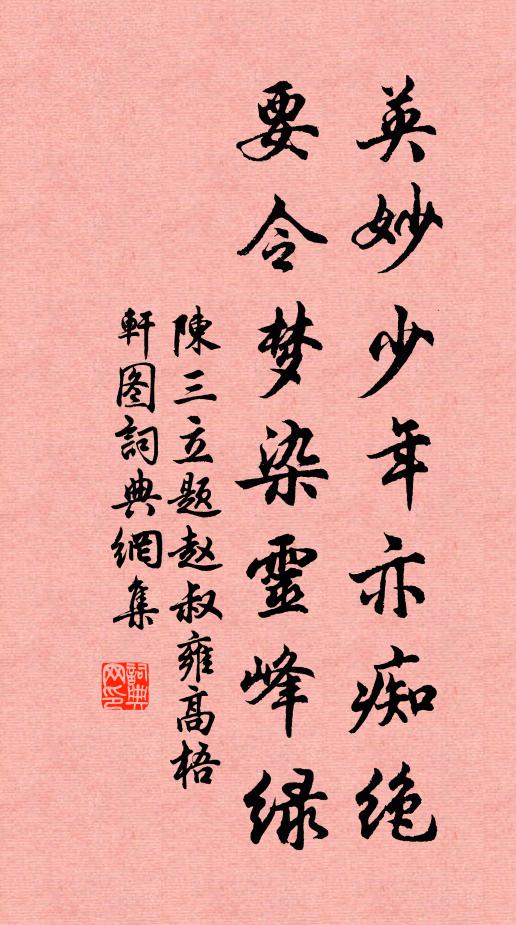 英妙少年亦痴绝
要令梦染靈峰绿
陳三立题赵叔雍高梧
軒图詞典網集
詞典
网印